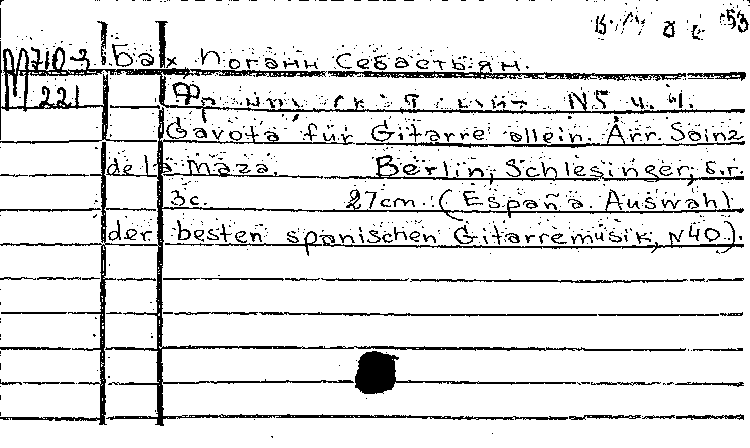 М710-3 Бах, Иоганн Себастьян.
221 N5 ч. 4.
Gavota für Gitarre allein. Arr. Sainz
de la Maza. Berlin, Schlesinger, s.r.
3c. 27cm. (España. Auswahl
der besten spanischen Gitarremusik, N40).